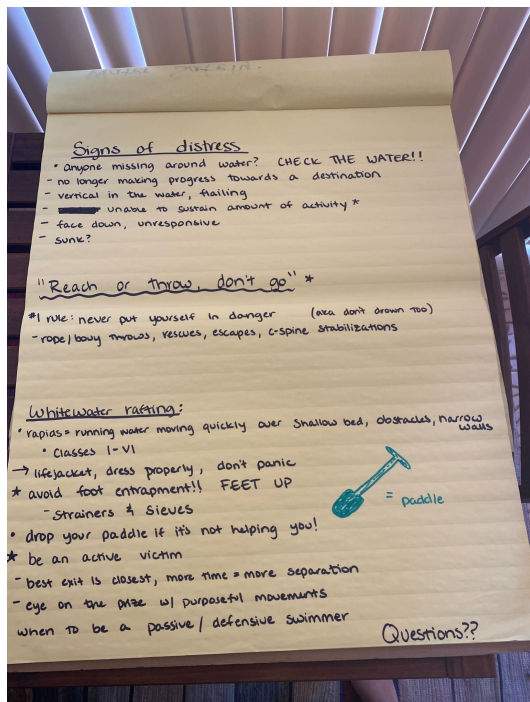 Signs of distress
• anyone missing around water? CHECK THE WATER!!
- no longer making progress towards a destination
- vertical in the water, flailing
- unable to sustain amount of activity *
- face down, unresponsive
- sunk?
"Reach or throw, don't go" *
#1 rule: never put yourself in danger (aka don't drown too)
- rope/bouy throws, rescues, escapes, c-spine stabilizations
Whitewater rafting:
• rapids = running water moving quickly over shallow bed, obstacles, narrow
walls
• Classes I-VI
→ lifejacket, dress properly, don't panic
* avoid foot entrapment!! FEET UP
- strainers & sieves
= paddle
• drop your paddle if it's not helping you!
* be an active victim
- best exit is closest, more time = more separation
- eye on the prize w/ purposeful movements
when to be a passive/defensive swimmer
Questions??